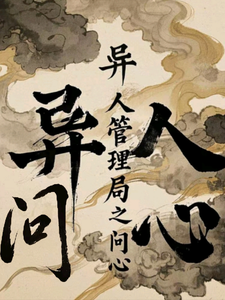 异人
问心
异人管理局之问心